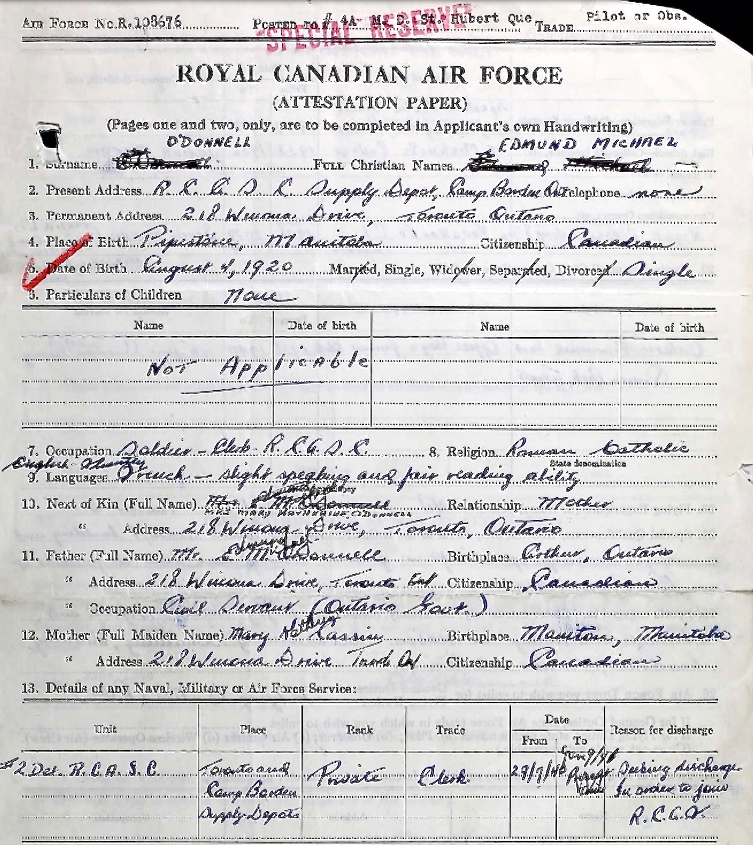 AIR FORCE No. R.198676 POSTED to # 4A M. D. St. Hubert Que TRADE Pilot or Obs.
SPECIAL RESERVE
ROYAL CANADIAN AIR FORCE
(ATTESTATION PAPER)
(Pages one and two, only, are to be completed in Applicant's own Handwriting)
O'DONNELL EDMUND MICHAEL
1. Surname FULL CHRISTIAN NAMES
2. Present Address R.C.A.S.C Supply Depot, Camp Borden Ont Telephone none
3. Permanent Address 218 Winona Drive, Toronto Ontario
4. Place of Birth Pipestone, Manitoba Citizenship Canadian
5. Date of Birth August 4, 1920 Married, Single, Widower, Separated, Divorced Single
6. Particulars of Children None
Name Date of birth Name Date of birth
Not Applicable
7. Occupation Soldier - Clerk R.C.A.S.C 8. Religion Roman Catholic
State denomination
English
9. Languages French - slight speaking and fair reading ability
10. Next of Kin (Full Name) Relationship Mother
MRS MARY KATHERINE O'DONNELL
" Address 218 Winona Drive, Toronto, Ontario
11. Father (Full Name) Mr. E M. O'Donnell Birthplace Ontario
" Address 218 Winona Drive, Toronto Ont Citizenship Canadian
" Occupation Civil Servant (Ontario Govt.)
12. Mother (Full Maiden Name) Mary Birthplace Manitou, Manitoba
" Address 218 Winona Drive Toronto Ont Citizenship Canadian
13. Details of any Naval, Military or Air Force Service:
Unit Place Rank Trade Date Reason for discharge
From To
#2 Det. R.C.A.S.C. Toronto and Camp Borden Supply Depots Private Clerk 29/7/40 discharge in order to join R.C.A.F.